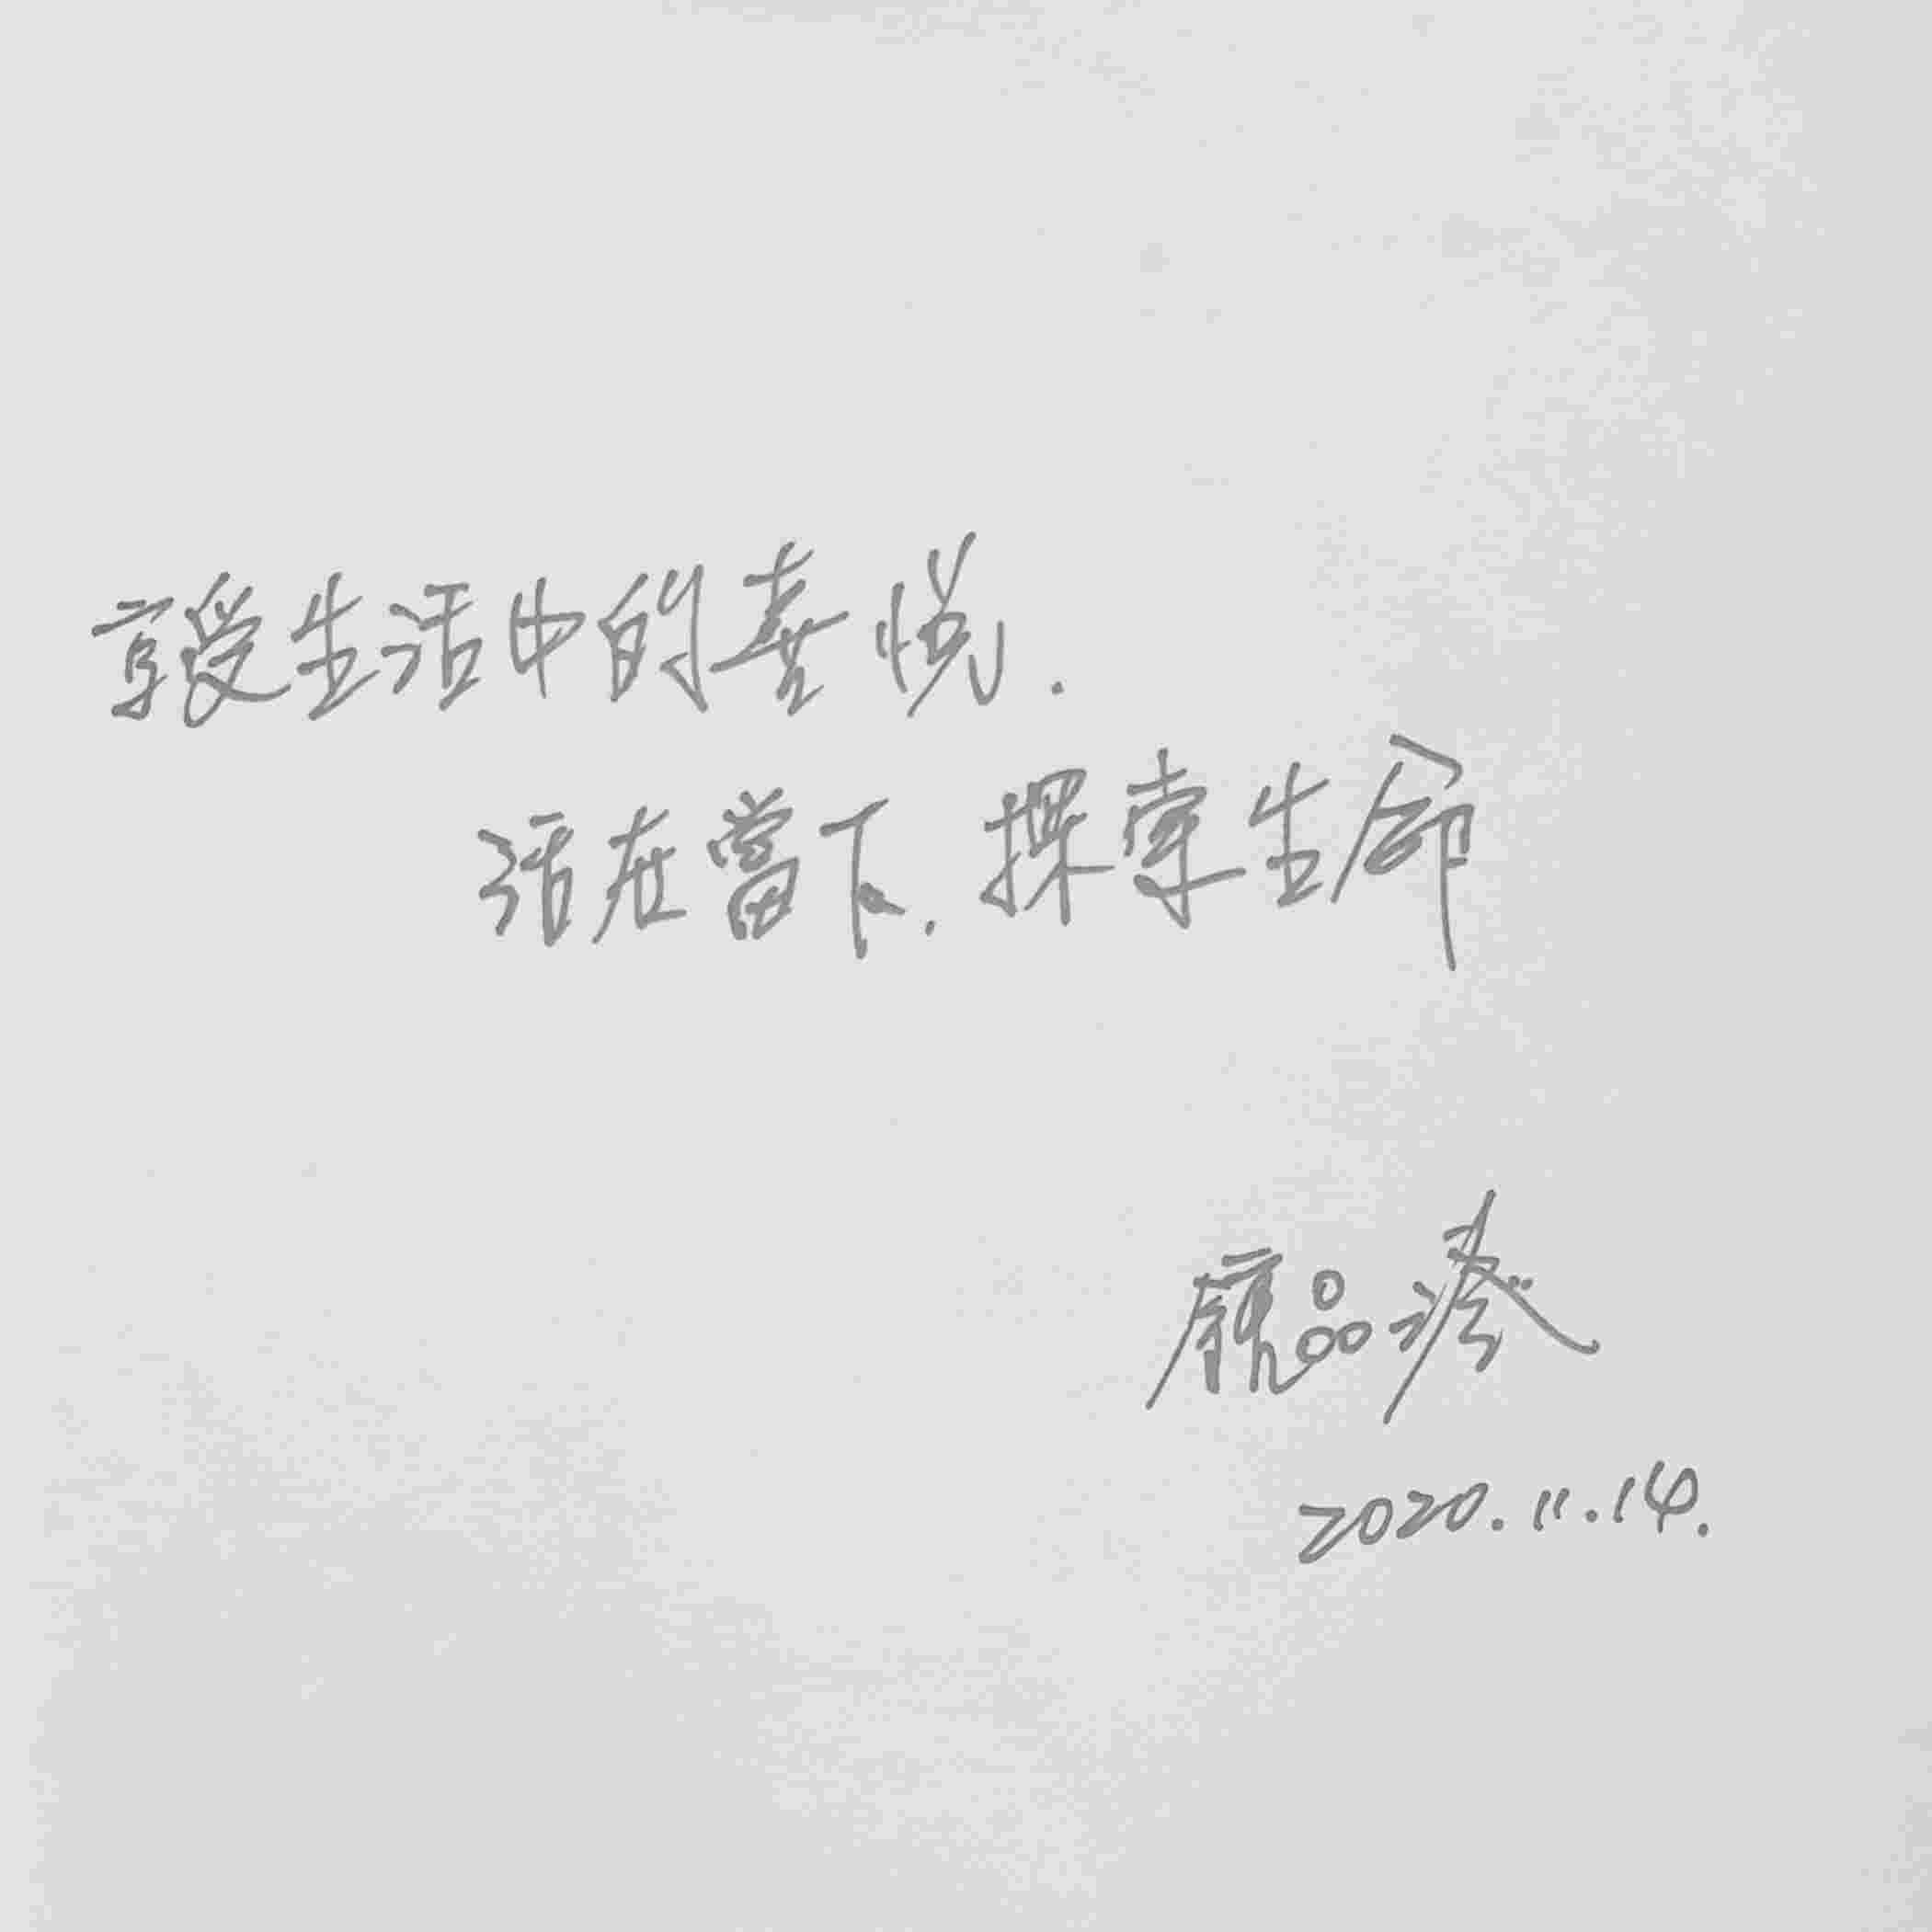 享受生活中的喜悅.
活在當下.探索生命
品
2020.11.14.